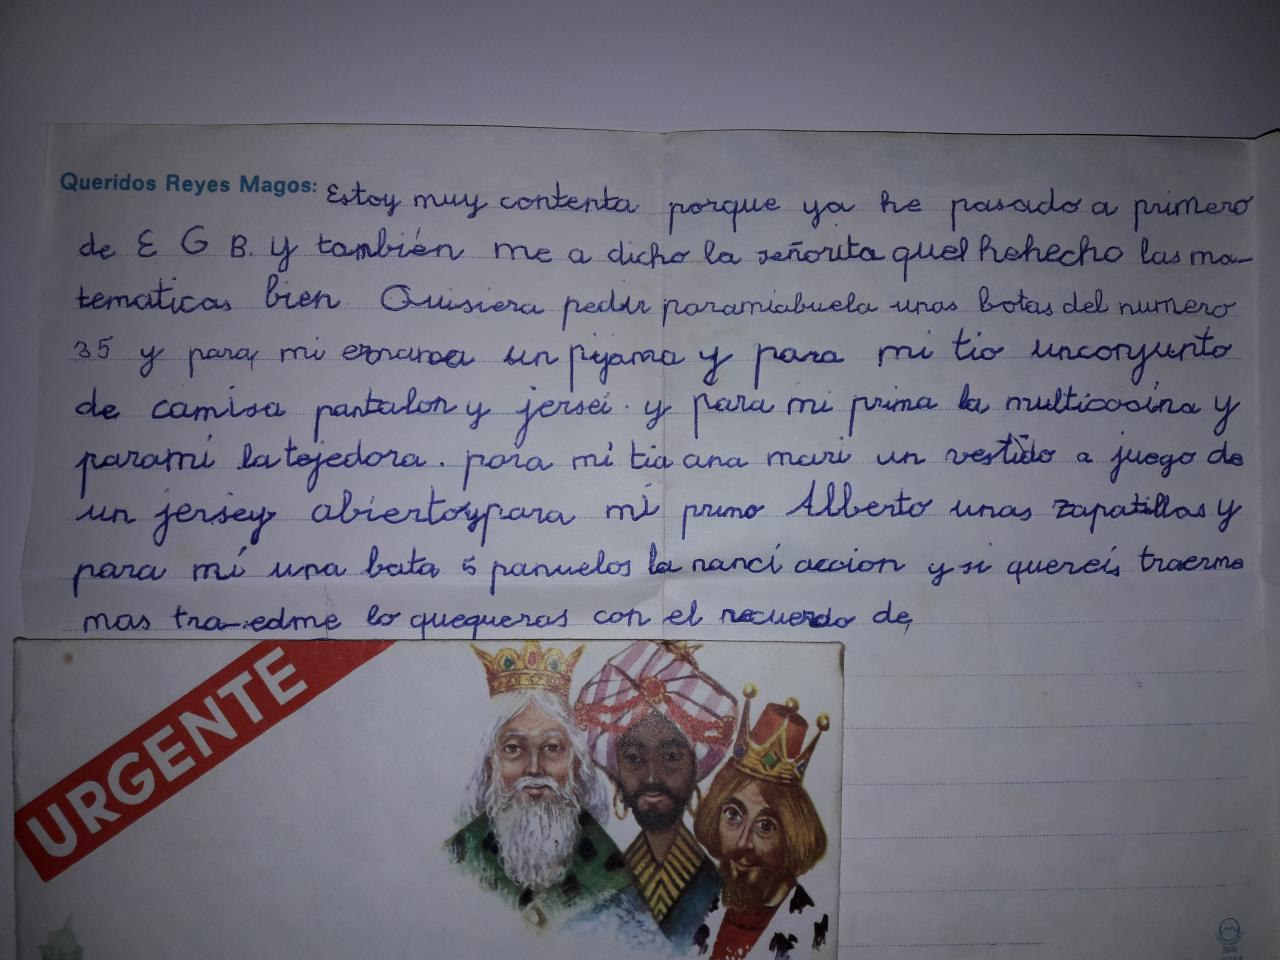 Queridos Reyes Magos: Estoy muy contenta porque ya he pasado a primero
de E G B. y también me a dicho la señorita quel hehecho las ma-
tematicas bien Quisiera pedir paramiabuela unas botas del numero
35 y para mi ermana un pijama y para mi tio unconjunto
de camisa pantalon y jersei. y para mi prima la multicocina y
parami la tejedora. para mi tia ana mari un vestido a juego de
un jersey abiertoypara mi primo Alberto unas zapatillas y
para mí una bata 5 panuelos la nanci accion y si quereis traerme
mas tra-edme lo quequeras con el recuerdo de,
URGENTE